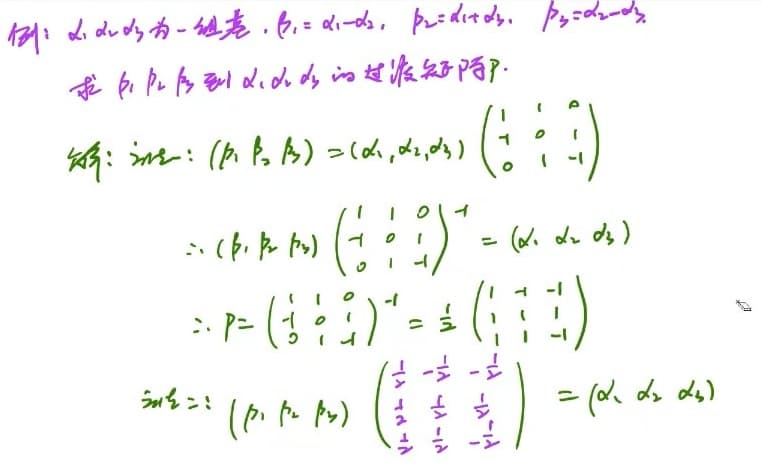 例: α₁ α₂ α₃ 为一组基, β₁=α₁-α₂, β₂=α₁+α₃, β₃=α₂-α₃
求 β₁ β₂ β₃ 到 α₁ α₂ α₃ 的过渡矩阵P.
解: 法一: (β₁ β₂ β₃) = (α₁, α₂, α₃) (1 1 0; -1 0 1; 0 1 -1)
∴ (β₁ β₂ β₃) (1 1 0; -1 0 1; 0 1 -1)⁻¹ = (α₁ α₂ α₃)
∴ P = (1 1 0; -1 0 1; 0 1 -1)⁻¹ = 1/2 (1 -1 -1; 1 1 1; 1 1 -1)
法二: (β₁ β₂ β₃) (1/2 -1/2 -1/2; 1/2 1/2 1/2; 1/2 1/2 -1/2) = (α₁ α₂ α₃)